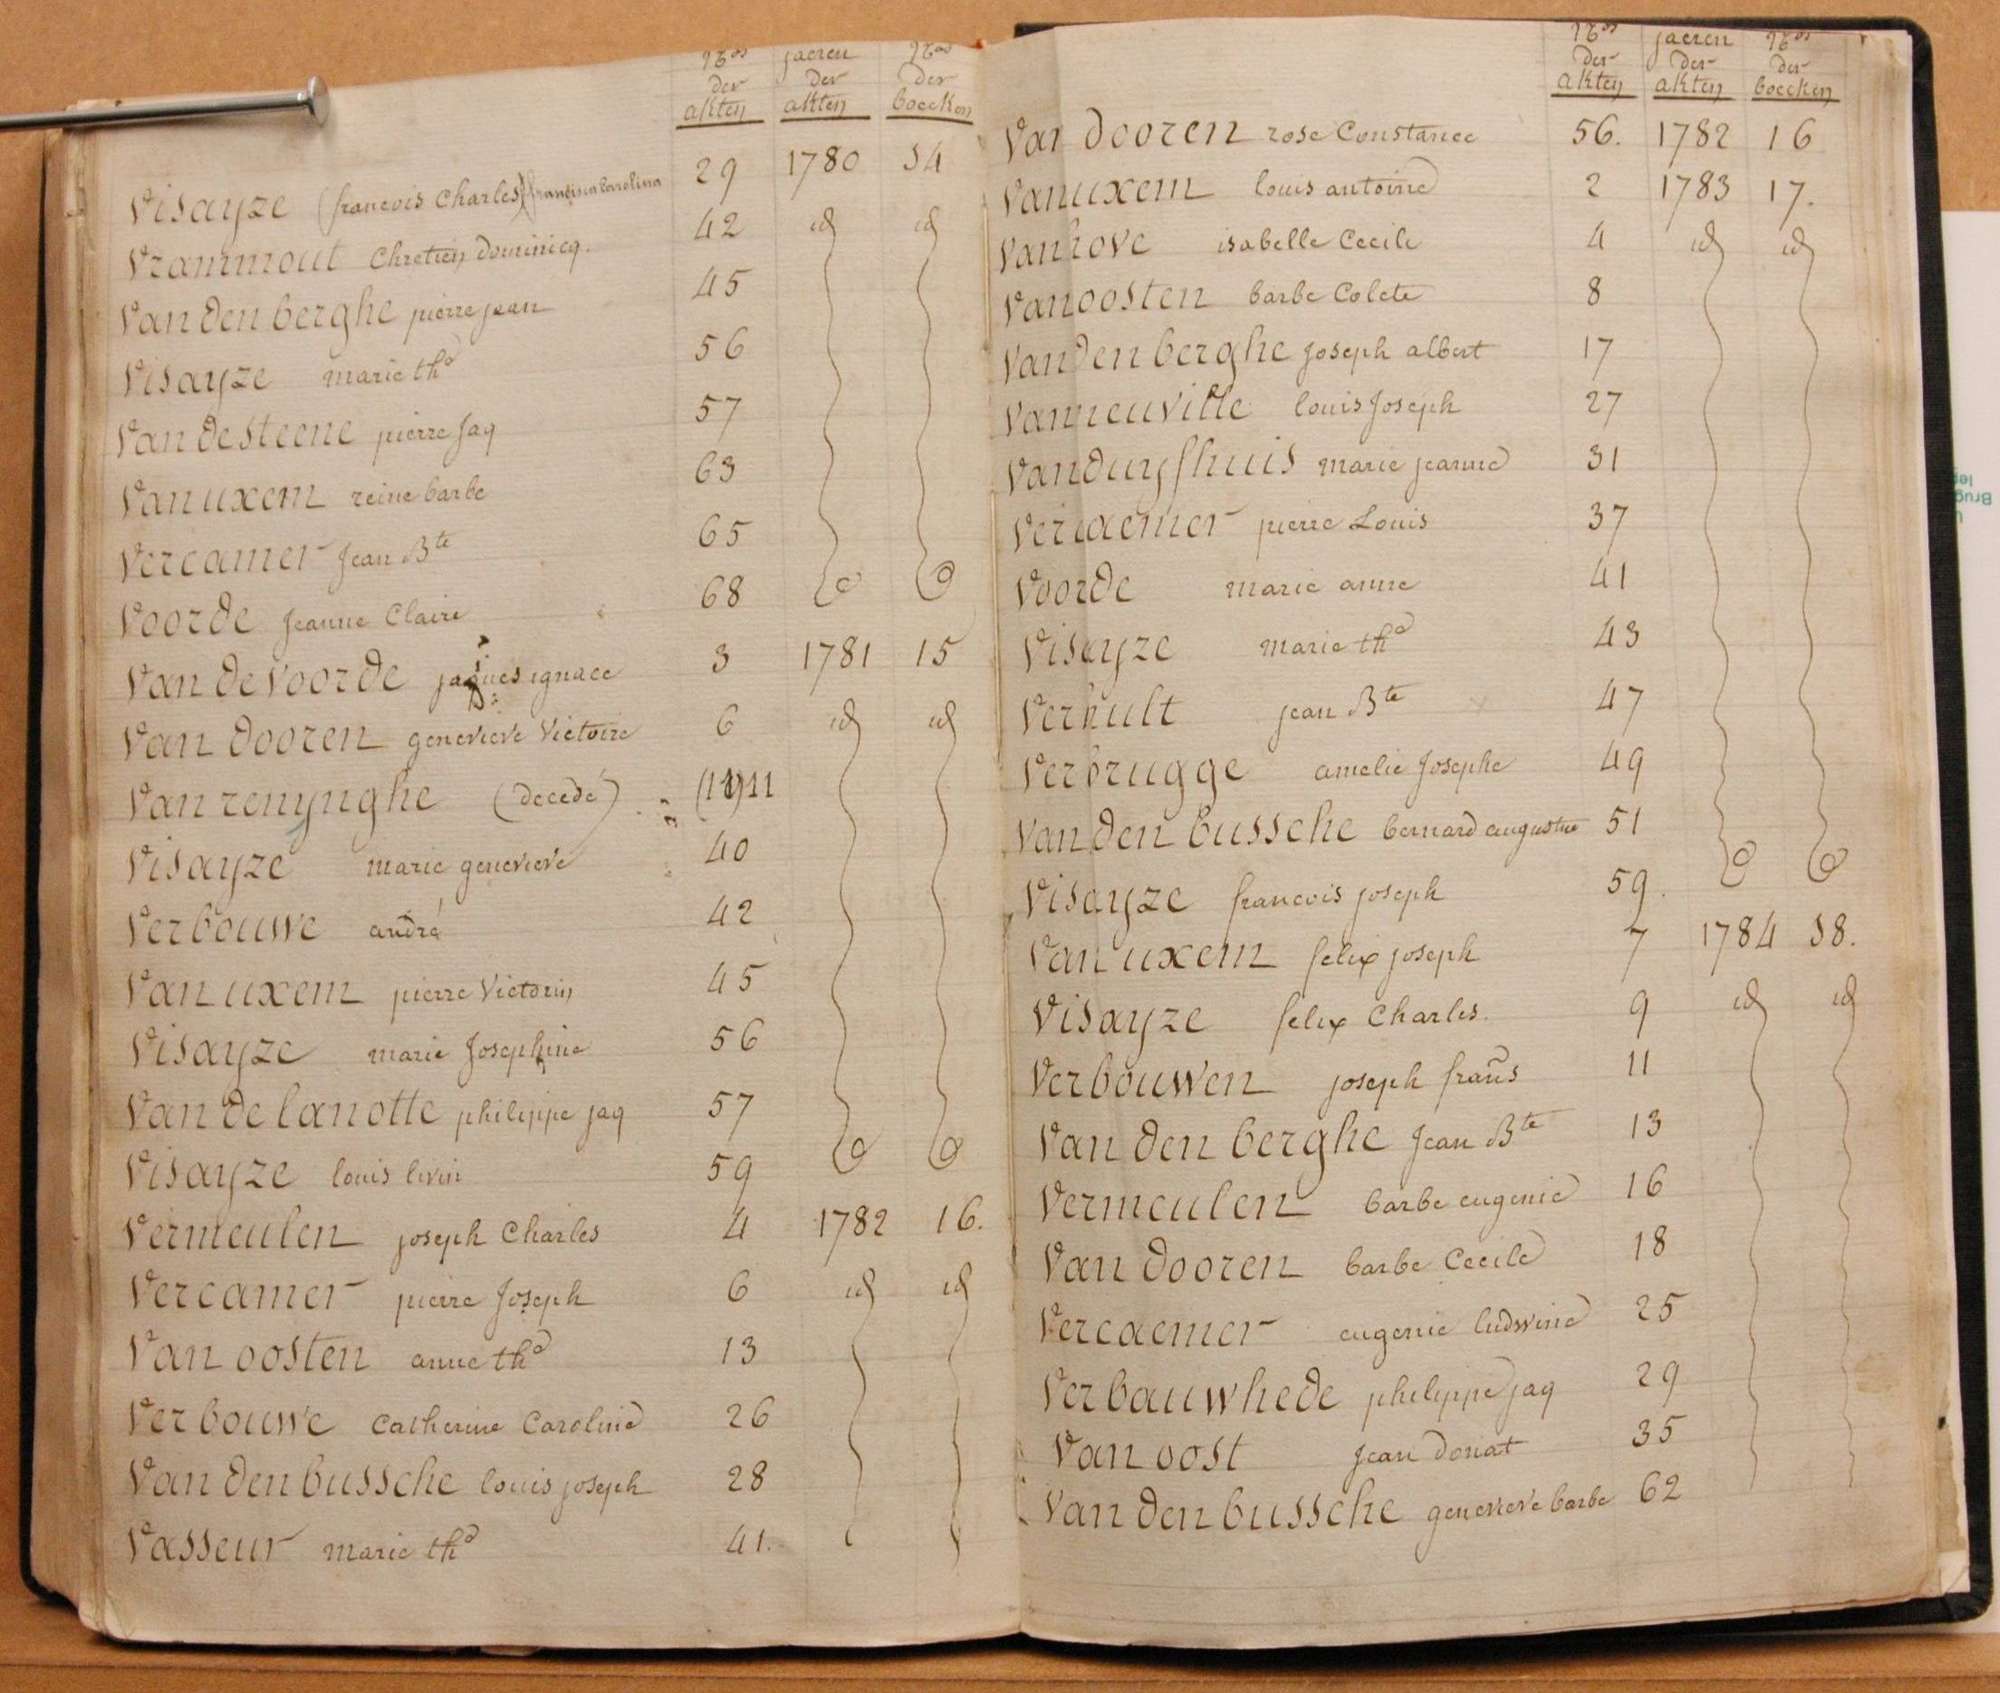 Nos jaeren Nos
der der der
akten akten boecken
Visayze (francois Charles) francisca Carolina 29 1780 14
Vrammout Chretien Dominicq. 42 id id
Van den berghe pierre jean 45
Visayze marie the 56
Van de steene pierre jaq 57
Van uxem reine barbe 63
Vercamer Jean Bte 65
Voorde Jeanne Claire 68
Van de voorde jaques ignace 3 1781 15
Van dooren genevieve Victoire 6 id id
Van renynghe (decedé) 11
Visayze marie genevieve 40
Verbouwe andré 42
Van uxem pierre Victorin 45
Visayze marie Josephine 56
Van de lanotte philippe jaq 57
Visayze louis livin 59
Vermeulen joseph Charles 4 1782 16.
Vercamer pierre Joseph 6 id id
Van oosten anne the 13
Verbouwe Catherine Caroline 26
Van den bussche louis joseph 28
Vasseur marie the 41.
Nos jaeren Nos
der der der
akten akten boecken
Van dooren rose Constance 56. 1782 16
Vanuxem louis antoine 2 1783 17.
Vanhove isabelle Cecile 4 id id
Vanoosten barbe Colete 8
Vandenberghe Joseph albert 17
Vanneuville louis Joseph 27
Vanduyfhuis marie jeanne 31
Vercaemer pierre Louis 37
Voorde marie anne 41
Visayze marie the 43
Verhult jean Bte 47
Verbrugge amelie Josephe 49
Van den bussche bernard augustin 51
Visayze francois joseph 59.
Van uxem felix joseph 7 1784 18.
Visayze felix Charles. 9 id id
Verbouwen joseph frans 11
Van den berghe Jean Bte 13
Vermeulen barbe eugenie 16
Van dooren barbe Cecile 18
Vercaemer eugenie ludwine 25
Verbauwhede philippe jaq 29
Van oost Jean donat 35
Van den bussche genevieve barbe 62